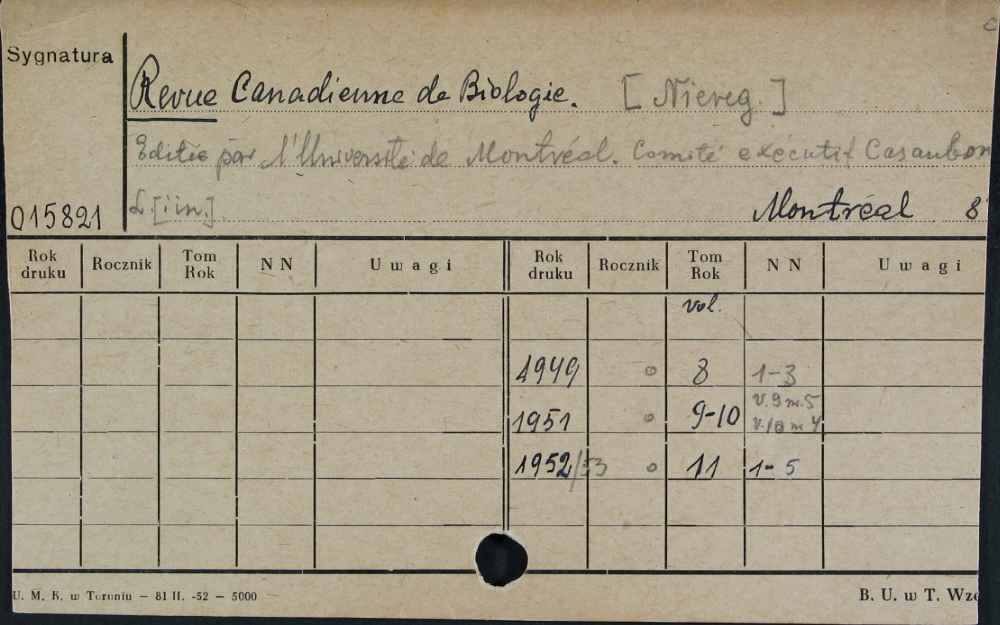 Sygnatura
Revue Canadienne de Biologie. [Niereg.]
Editée par l'Université de Montréal. Comité exécutif Casaubon
L. [i in.]
015821 Montréal 8°
Rok druku Rocznik Tom Rok N N Uwagi Rok druku Rocznik Tom Rok N N Uwagi
vol.
1949 o 8 1-3
1951 o 9-10 v. 9 n. 5 v. 10 n 4
1952/53 o 11 1-5
U. M. K. w Toruniu — 81 II. -52 — 5000 B. U. w T. Wzó